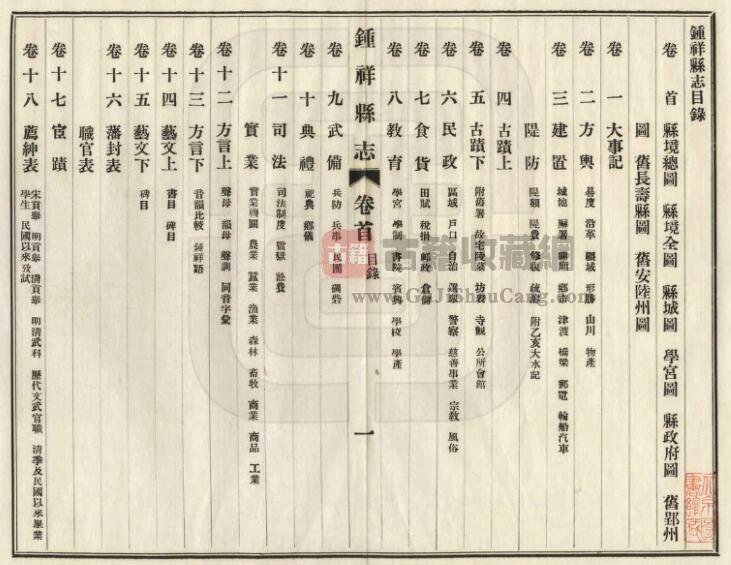 鍾祥縣志目錄
卷首 縣境總圖 縣境全圖 縣城圖 學宮圖 縣政府圖 舊郢州
圖 舊長壽縣圖 舊安陸州圖
卷一 大事記
卷二 方輿 晷度 沿革 疆域 形勝 山川 物產
卷三 建置 城池 廨署 鄉市 津渡 橋梁 郵電 輪船汽車
隄防 隄額 隄費 修復 疏濬 附乙亥大水記
卷四 古蹟上
卷五 古蹟下 附藩署 故宅陵墓 坊表 寺觀 公所會館
卷六 民政 區域 戶口 自治 選舉 警察 慈善事業 宗敎 風俗
卷七 食貨 田賦 稅捐 郵政 倉儲
卷八 教育 學宮 學制 書院 賓興 學校 學產
鍾祥縣志 卷首 目錄 一
古籍 古籍收藏網
www.GuJiShouCang.com
卷九 武備 兵防 兵事 民團 礮砦
卷十 典禮 祀典 鄉儀
卷十一 司法 司法制度 監獄 訟費
實業 實業機關 農業 蠶業 漁業 森林 畜牧 商業 商品 工業
卷十二 方言上 聲母 韻母 聲調 同音字彙
卷十三 方言下 音韻比較 鍾祥語
卷十四 藝文上 書目 碑目
卷十五 藝文下 碑目
卷十六 藩封表
職官表
卷十七 宦蹟
卷十八 薦紳表 宋貢舉 明貢舉 清貢舉 明清武科 歷代文武官職 清季及民國以來畢業
學生 民國以來攷試